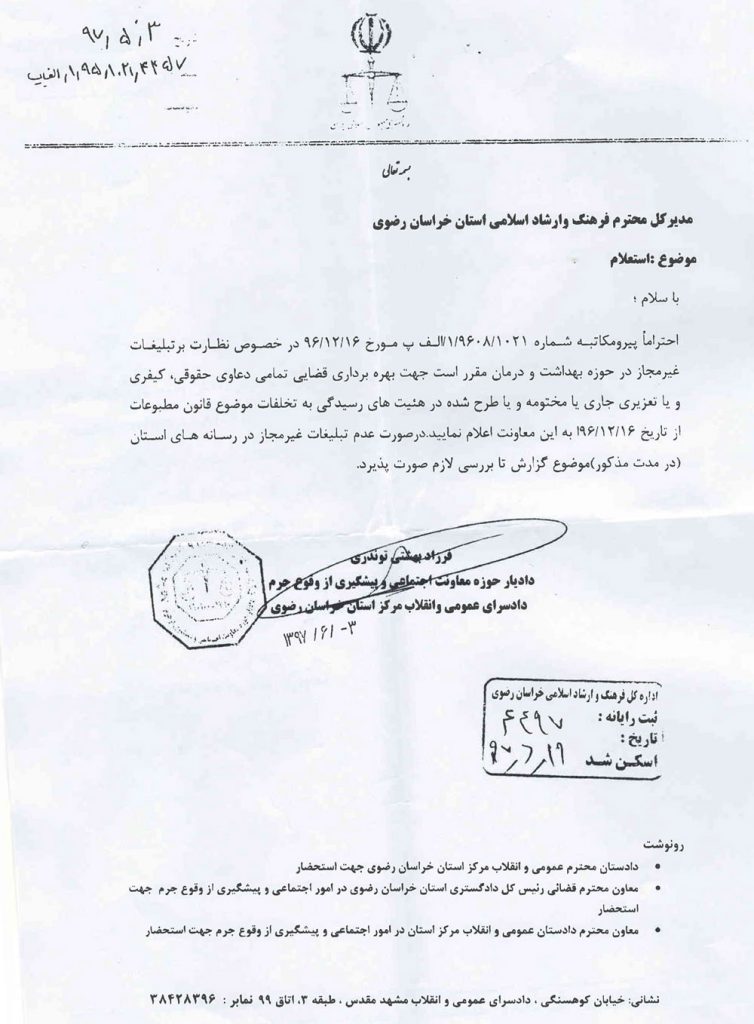 ۹۷٫۵٫۳
بسمه تعالی
مدیرکل محترم فرهنگ وارشاد اسلامی استان خراسان رضوی
موضوع :استعلام
با سلام ؛
احتراماً پیرومکاتبه شماره ۱/۹۶۰۸/۱۰۲۱/الف پ مورخ ۹۶/۱۲/۱۶ در خصوص نظارت برتبلیغات
غیرمجاز در حوزه بهداشت و درمان مقرر است جهت بهره برداری قضایی تمامی دعاوی حقوقی، کیفری
و یا تعزیری جاری یا مختومه و یا طرح شده در هئیت های رسیدگی به تخلفات موضوع قانون مطبوعات
از تاریخ ۹۶/۱۲/۱۶ا به این معاونت اعلام نمایید.درصورت عدم تبلیغات غیرمجاز در رسانه های استان
(در مدت مذکور)موضوع گزارش تا بررسی لازم صورت پذیرد.
فرزاد بهشتی توندری
دادیار حوزه معاونت اجتماعی و پیشگیری از وقوع جرم
دادسرای عمومی وانقلاب مرکز استان خراسان رضوی
۱۳۹۷/۶/۰۳
اداره کل فرهنگ و ارشاد اسلامی خراسان رضوی
ثبت رایانه : ۴۴۹۷
تاریخ :
اسکن شد
رونوشت
• دادستان محترم عمومی و انقلاب مرکز استان خراسان رضوی جهت استحضار
• معاون محترم قضائی رئیس کل دادگستری استان خراسان رضوی در امور اجتماعی و پیشگیری از وقوع جرم جهت
استحضار
• معاون محترم دادستان عمومی و انقلاب مرکز استان در امور اجتماعی و پیشگیری از وقوع جرم جهت استحضار
نشانی: خیابان کوهسنگی ، دادسرای عمومی و انقلاب مشهد مقدس ، طبقه ۳، اتاق ۹۹ نمابر : ۳۸۴۲۸۳۹۶